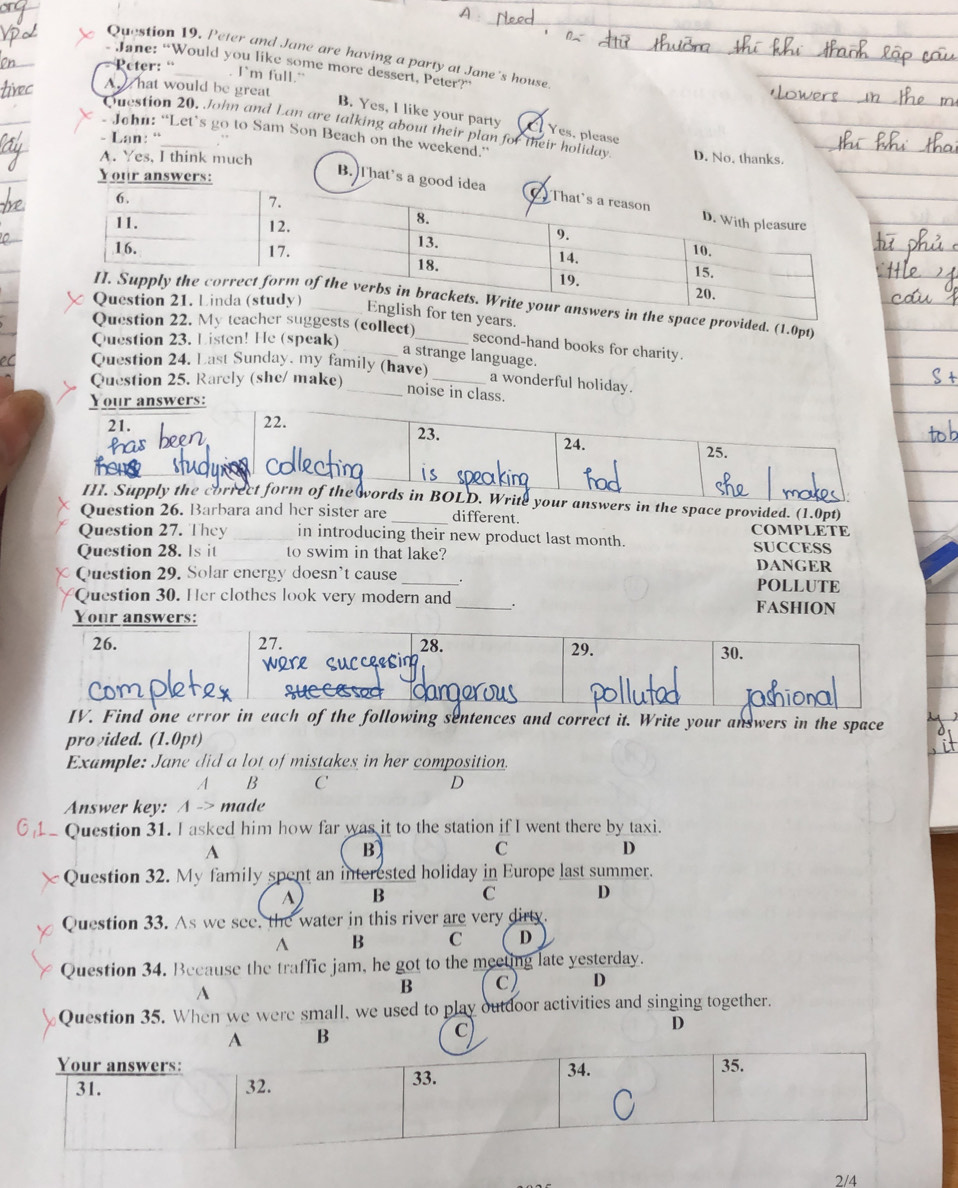 A Need
từ thường thì khi thành lập câu
flowers in the
thì khi
Question 19. Peter and Jane are having a party at Jane's house.
- Jane: “Would you like some more dessert, Peter?”
- Peter: “______. I'm full.”
A. That would be great B. Yes, I like your party C. Yes, please D. No, thanks.
Question 20. John and Lan are talking about their plan for their holiday.
- John: “Let's go to Sam Son Beach on the weekend.”
- Lan: “______.”
A. Yes, I think much B. That's a good idea C. That's a reason D. With pleasure
Your answers:
6. 7. 8. 9. 10.
11. 12. 13. 14. 15.
16. 17. 18. 19. 20.
II. Supply the correct form of the verbs in brackets. Write your answers in the space provided. (1.0pt)
Question 21. Linda (study) English for ten years.
Question 22. My teacher suggests (collect) ______ second-hand books for charity.
Question 23. Listen! He (speak) ______ a strange language.
Question 24. Last Sunday, my family (have) ______ a wonderful holiday.
Question 25. Rarely (she/ make) ______ noise in class.
Your answers:
21. 22. 23. 24. 25.
has been
studying collecting is speaking had she / makes
III. Supply the correct form of the words in BOLD. Write your answers in the space provided. (1.0pt)
Question 26. Barbara and her sister are ______ different. COMPLETE
Question 27. They ______ in introducing their new product last month. SUCCESS
Question 28. Is it ______ to swim in that lake? DANGER
Question 29. Solar energy doesn't cause ______. POLLUTE
Question 30. Her clothes look very modern and ______. FASHION
Your answers:
26. 27. 28. 29. 30.
were successing
completex successed dangerous polluted fashional
IV. Find one error in each of the following sentences and correct it. Write your answers in the space
provided. (1.0pt)
Example: Jane did a lot of mistakes in her composition.
A B C D
Answer key: A -> made
0,1 Question 31. I asked him how far was it to the station if I went there by taxi.
A B C D
Question 32. My family spent an interested holiday in Europe last summer.
A B C D
Question 33. As we see, the water in this river are very dirty.
A B C D
Question 34. Because the traffic jam, he got to the meeting late yesterday.
A B C D
Question 35. When we were small, we used to play outdoor activities and singing together.
A B C D
Your answers:
31. 32. 33. 34. 35.
C
2/4